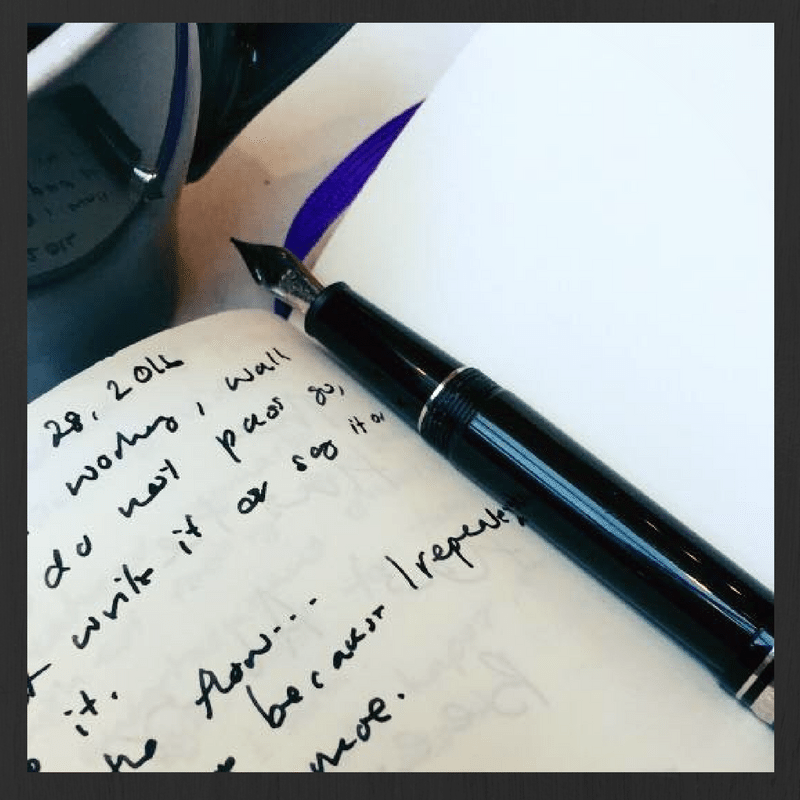 28, 2016
working, wall
do not pass go,
write it or say it or
it.
the flow...
because I repeat
more.